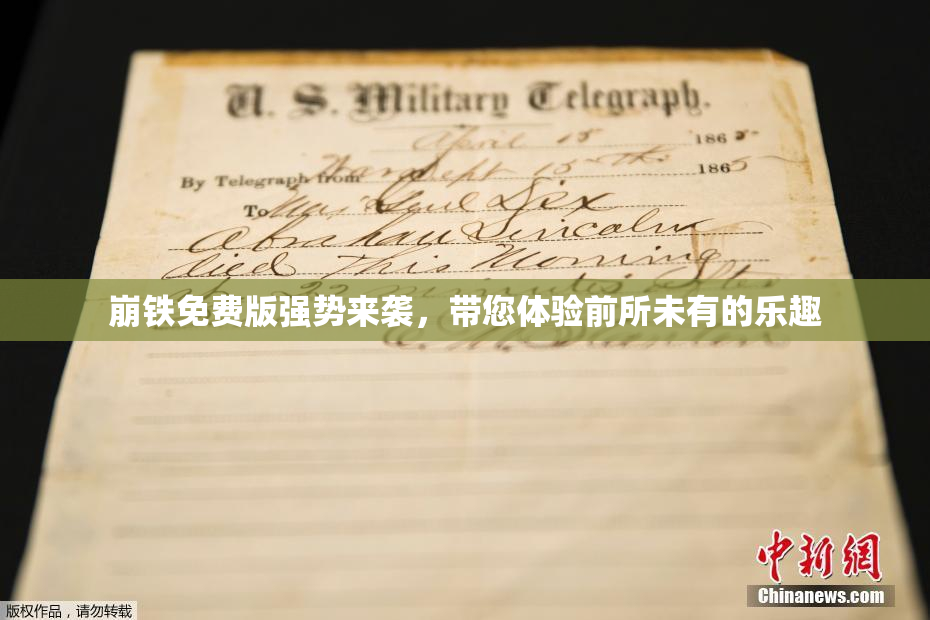 U. S. Military Telegraph.
April 15 1865
By Telegraph from War Dept 15th 1865
To Maj Genl Dix
Abraham Lincoln
died This Morning
at 22 minutes after
崩铁免费版强势来袭，带您体验前所未有的乐趣
E. M. Stanton
中新网
Chinanews.com
版权作品，请勿转载